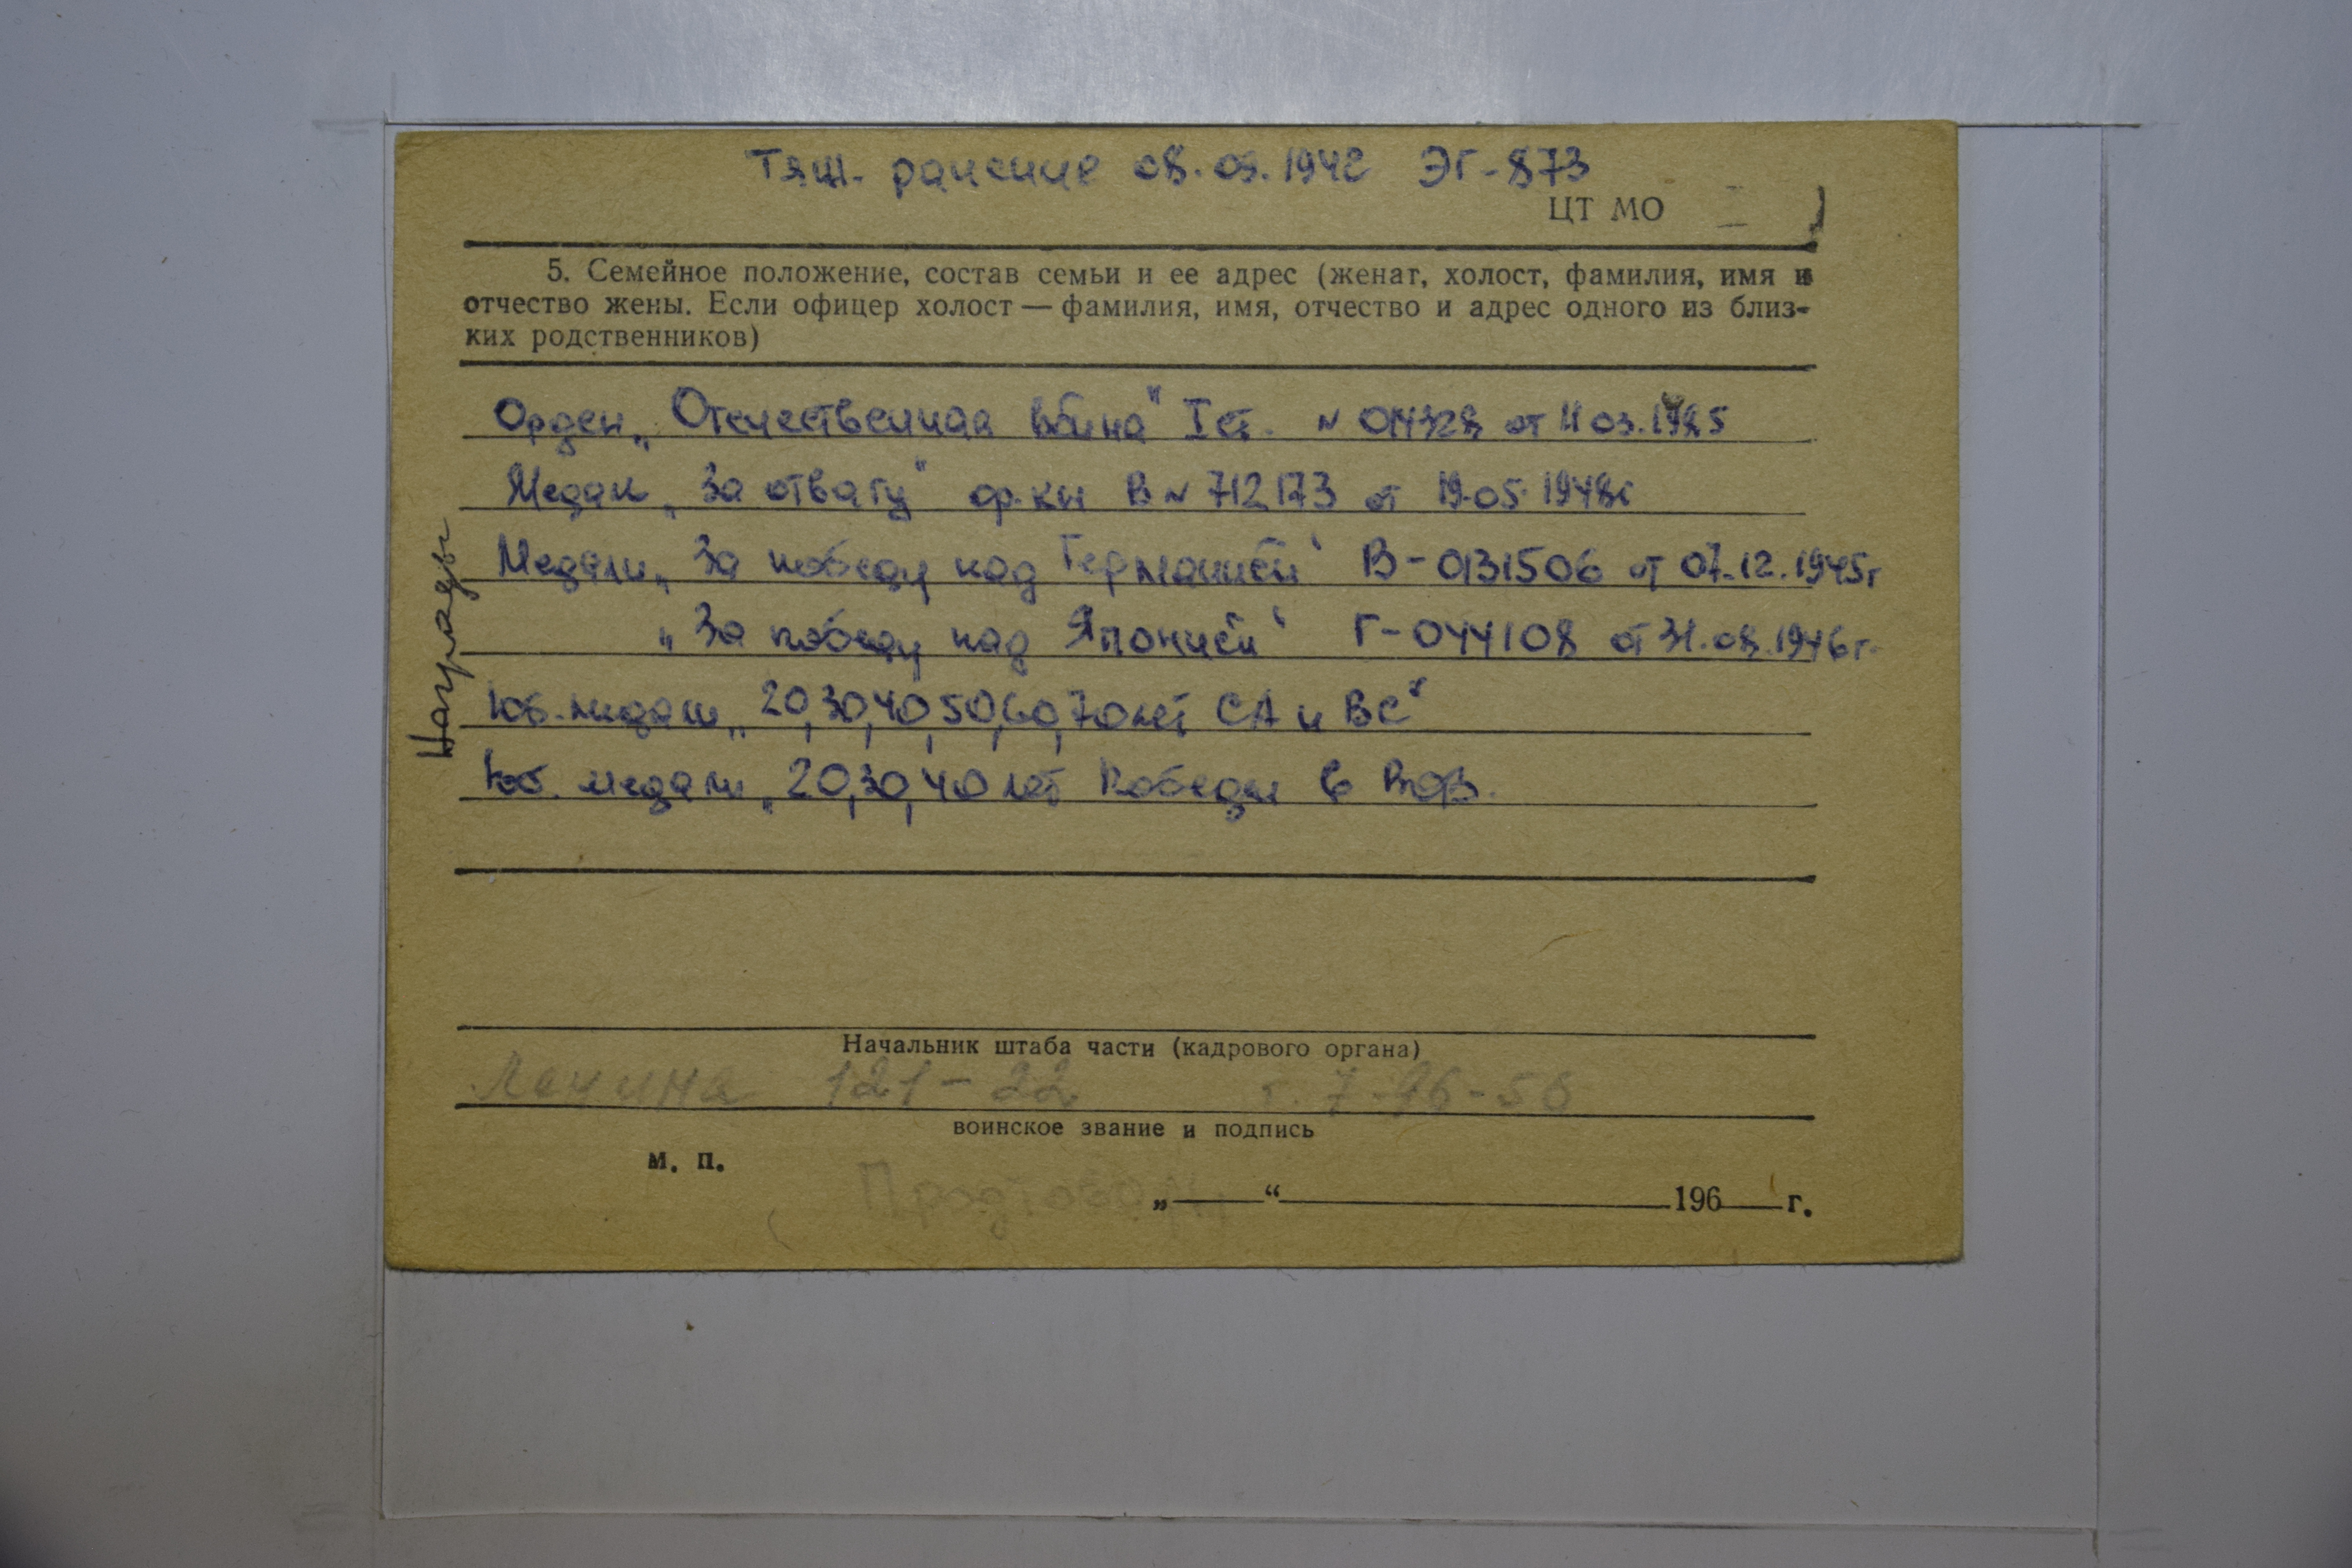 Тяж. ранение 08.09.1942 ЭГ-873
ЦТ МО
5. Семейное положение, состав семьи и ее адрес (женат, холост, фамилия, имя и
отчество жены. Если офицер холост — фамилия, имя, отчество и адрес одного из близ-
ких родственников)
Награды
Орден „Отечественная война" I ст. № от 11 03.1985
Медаль „За отвагу" ор.кн В № 712173 от 19.05.1948г
Медали „За победу над Германией" В-0131506 от 07.12.1945г
„За победу над Японией" Г-044108 от 31.08.1946г.
Юб. медали „20,30,40,50,60,70 лет СА и ВС"
Юб. медали „20,30,40 лет Победы в ВОВ.
Начальник штаба части (кадрового органа)
Ленина 121-22 т. 7-96-56
воинское звание и подпись
м. п.
„ “ 196 г.